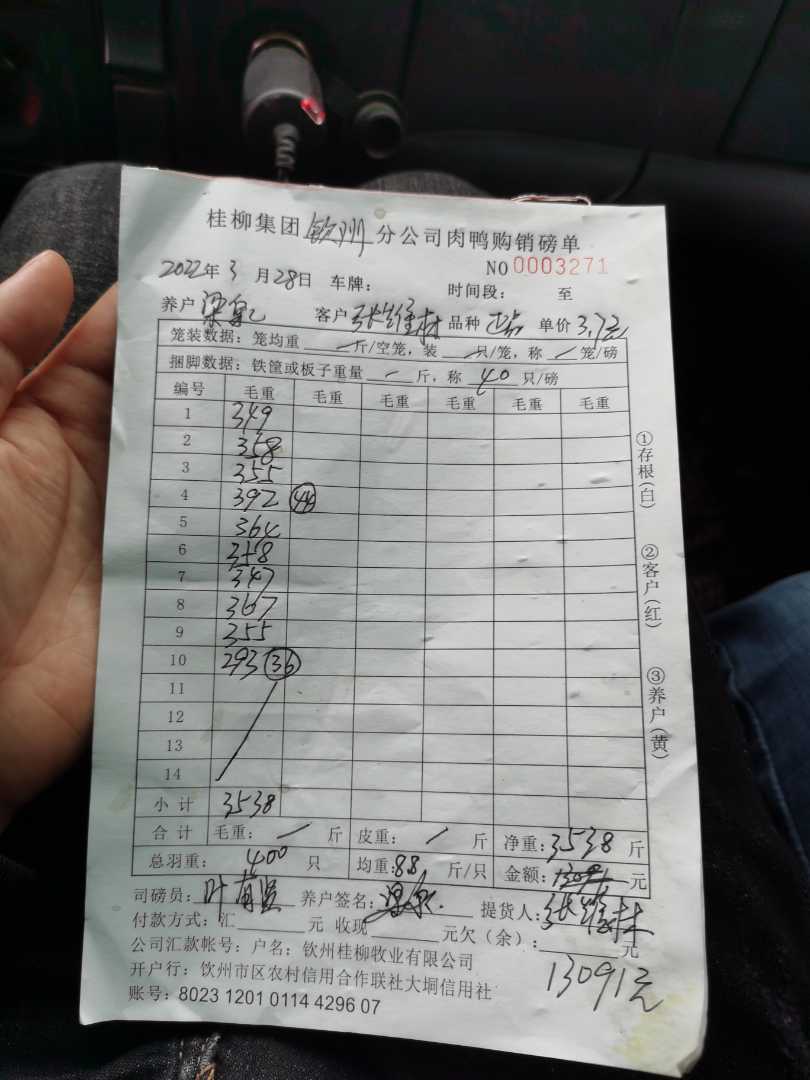 桂柳集团 钦州 分公司肉鸭购销磅单
NO 0003271
2022年3月28日 车牌： 时间段： 至
养户 梁 客户 张维林 品种 正品 单价 3.7元
笼装数据：笼均重 / 斤/空笼，装 / 只/笼，称 / 笼/磅
捆脚数据：铁筐或板子重量 / 斤，称 40 只/磅
编号 毛重 毛重 毛重 毛重 毛重 毛重
1 349
2 358
3 355
4 392 44
5 364
6 358
7 347
8 367
9 355
10 293 36
11
12
13
14
小计 3538
合计 毛重： / 斤 皮重： / 斤 净重：3538 斤
总羽重： 400 只 均重：88 斤/只 金额：13091 元
司磅员： 叶 养户签名：梁 提货人：张维林
付款方式：汇 元 收现 元欠（余）： 元
公司汇款帐号：户名：钦州桂柳牧业有限公司
13091元
开户行：钦州市区农村信用合作联社大垌信用社
账号：8023 1201 0114 4296 07
①存根（白）
②客户（红）
③养户（黄）